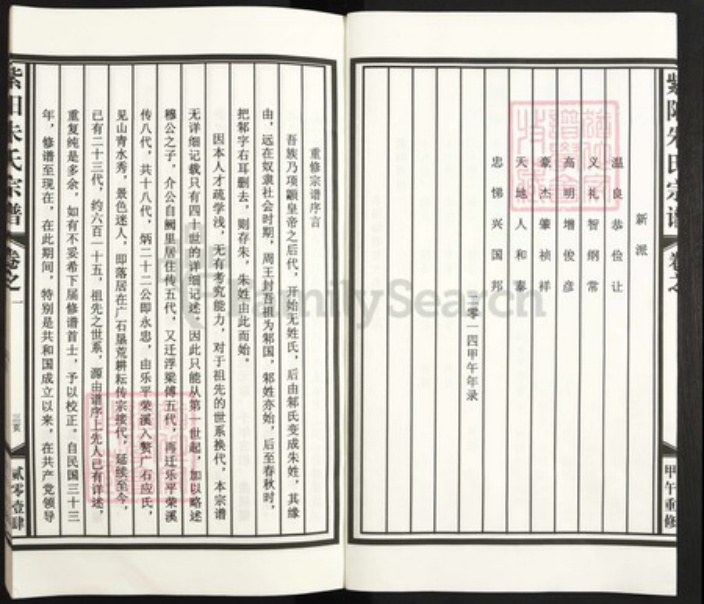 紫阳朱氏宗谱
卷之
甲午重修
新派
温良恭俭让
义礼智纲常
高明增俊彦
豪杰肇祯祥
天地人和泰
忠悌兴国邦
二零一四甲午年录
重修宗谱序言
吾族乃项顓皇帝之后代，开始无姓氏，后由邾氏变成朱姓，其缘
由，远在奴隶社会时期，周王封吾祖为邾国，邾姓亦始，后至春秋时，
把邾字右耳删去，则存朱，朱姓由此而始。
因本人才疏学浅，无有考究能力，对于祖先的世系换代，本宗谱
无详细记载只有四十世的详细记述，因此只能从第一世起，加以略述
穆公之子，介公自阙里居住传五代，又迁浮梁傅五代，再迁乐平荣溪
传八代，共十八代，炳二十二公即永忠，由乐平荣溪入赘广石应氏，
见山青水秀，景色迷人，即落居在广石垦荒耕耘传宗接代，延续至今，
已有二十三代，约六百一十五，祖先之世系，源由谱序上先人已有详述，
重复纯是多余，如有不妥希下届修谱首士，予以校正。自民国三十三
年，修谱至现在，在此期间，特别是共和国成立以来，在共产党领导
紫阳朱氏宗谱
卷之一
贰零壹肆
FamilySearch